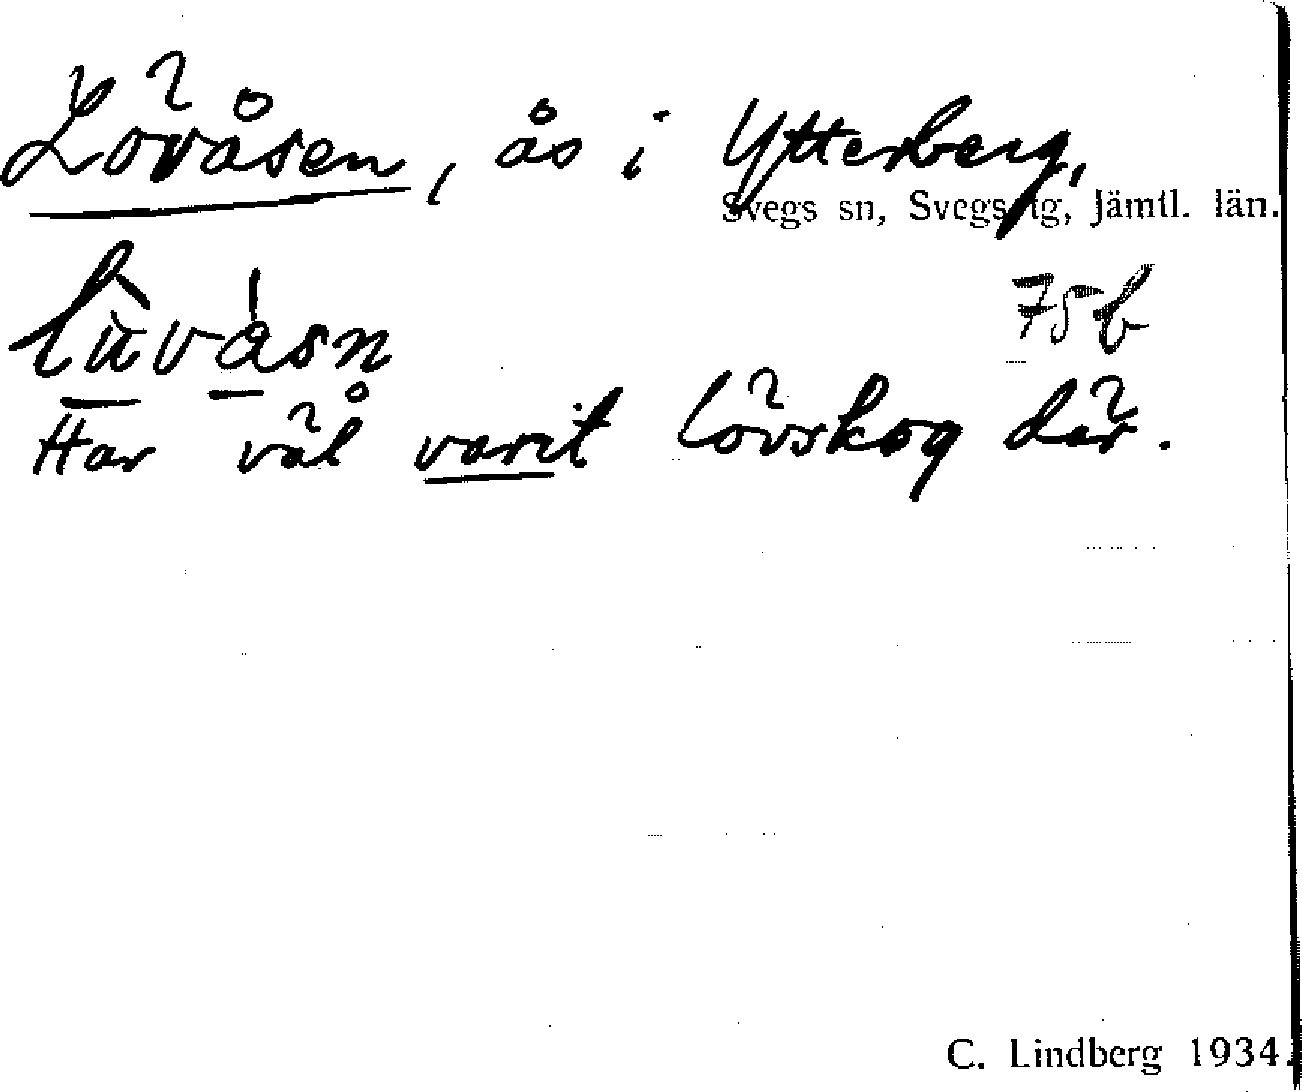 Lövåsen, ås i Ytterberg,
Svegs sn, Svegs tg, Jämtl. län.
75b
Har väl varit lövskog där.
C. Lindberg 1934.